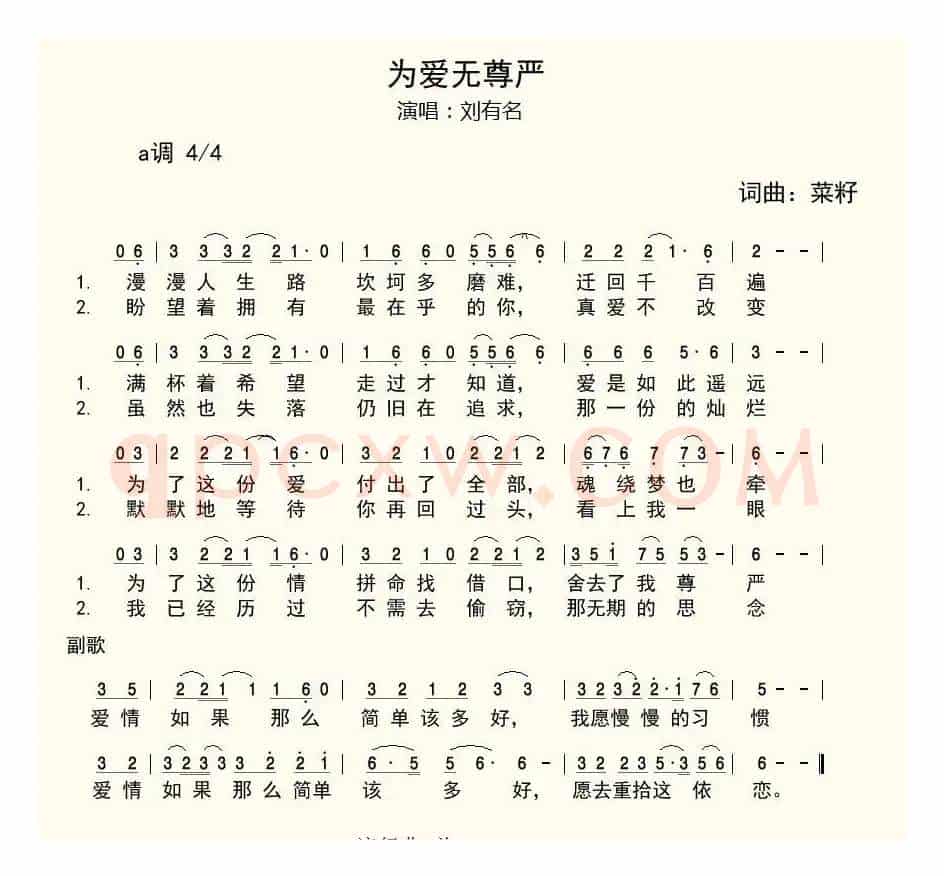 为爱无尊严
演唱：刘有名
a调 4/4
词曲: 菜籽
06 | 3 33221·0 | 16 60 5566 | 22 21·6 | 2-- |
1. 漫漫人生路 坎坷多磨难, 迂回千百遍
2. 盼望着拥有 最在乎的你, 真爱不改变
06 | 3 33221·0 | 16 60 5566 | 666 5·6 | 3-- |
1. 满杯着希望 走过才知道, 爱是如此遥远
2. 虽然也失落 仍旧在追求, 那一份的灿烂
qpcxw.COM
03 | 2 22116·0 | 32 10 2212 | 676 7 73- | 6-- |
1. 为了这份爱 付出了全部, 魂绕梦也牵
2. 默默地等待 你再回过头, 看上我一眼
03 | 3 22116·0 | 32 10 2212 | 351 75 53- | 6-- |
1. 为了这份情 拼命找借口, 舍去了我尊严
2. 我已经历过 不需去偷窃, 那无期的思念
副歌
35 | 2211 160 | 32 12 33 | 32322·176 | 5-- |
爱情如果那么 简单该多好, 我愿慢慢的习惯
32 | 3233 32 21 | 6·5 56·6- | 32 235·356 | 6-- ‖
爱情如果那么简单 该多好, 愿去重拾这依恋。